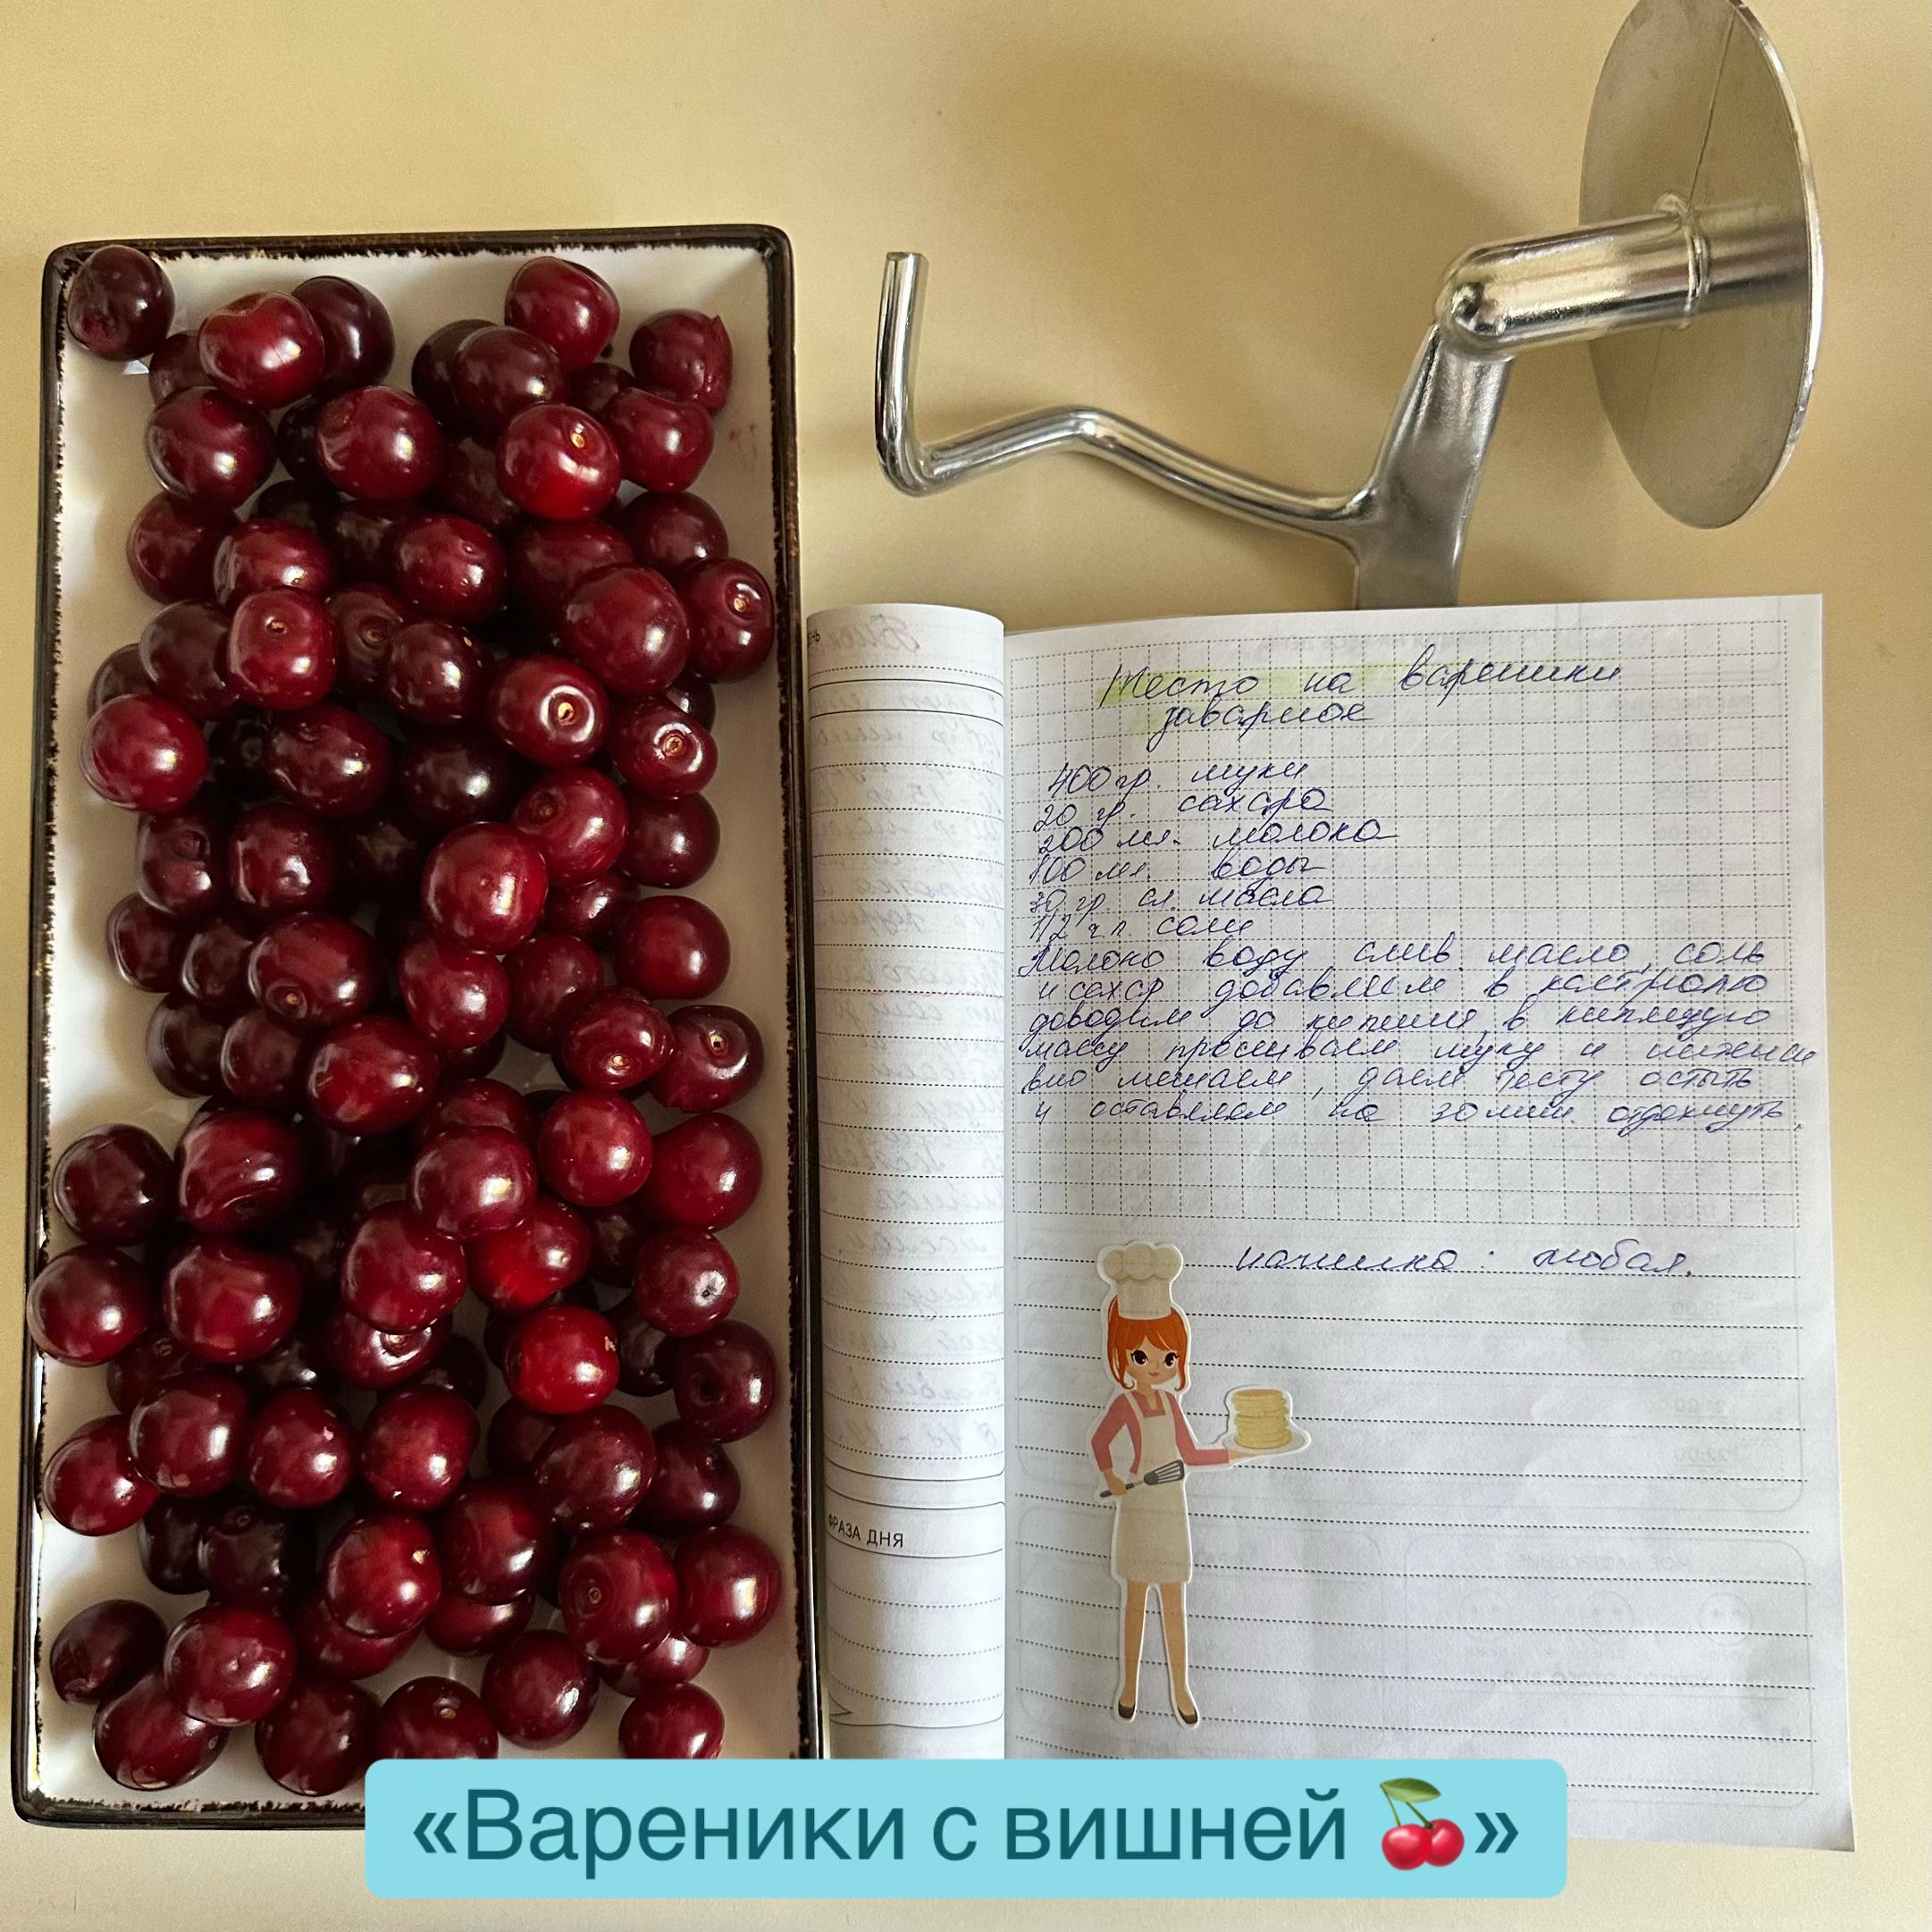 Тесто на вареники
заварное
400 гр. муки
20 гр. сахара
200 мл. молока
100 мл. воды
30 гр сл. масла
1/2 ч л. соли
Молоко воду слив. масло, соль
и сахар добавляем в кастрюлю
доводим до кипения, в кипящую
массу просеиваем муку и
вно мешаем, даем тесту остыть
и оставляем на 30 мин. отдохнуть.
начинка: любая.
ФРАЗА ДНЯ
«Вареники с вишней 🍒»